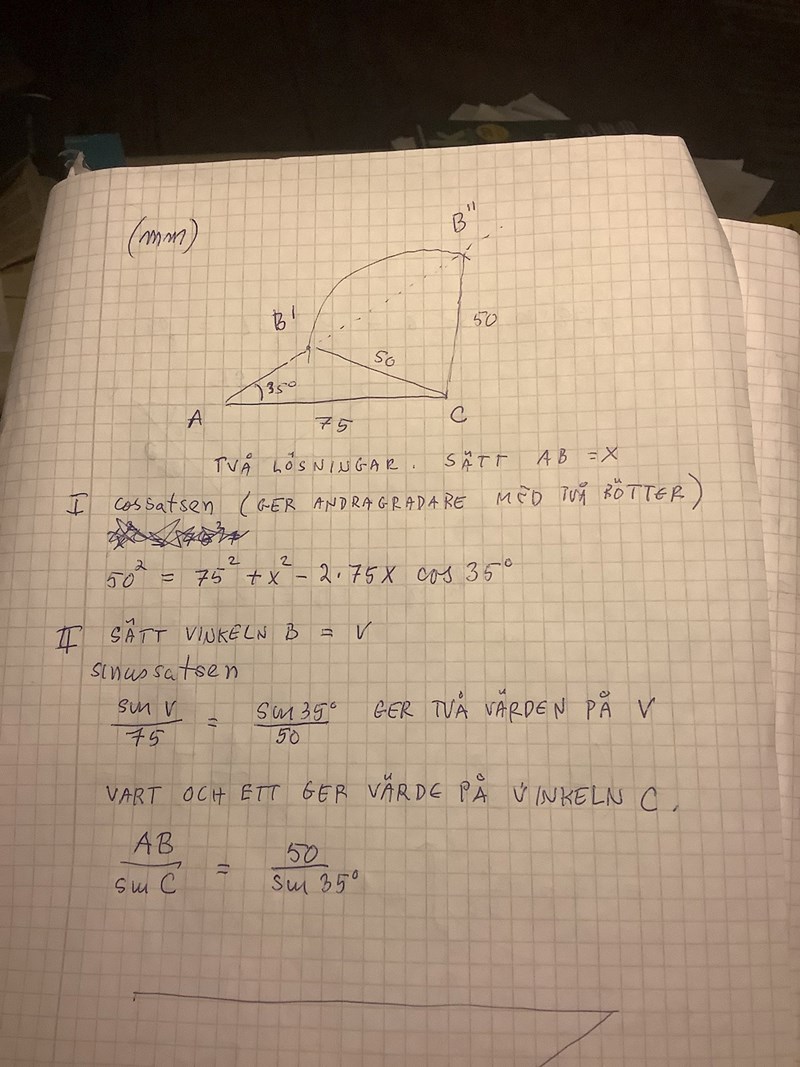 (mm)
B"
B'
50
50
35°
A
75
C
TVÅ LÖSNINGAR. SÄTT AB = X
I cossatsen (GER ANDRAGRADARE MED TVÅ RÖTTER)
50² = 75² + x² - 2·75x cos 35°
II SÄTT VINKELN B = V
sinussatsen
sin V / 75 = sin 35° / 50 GER TVÅ VÄRDEN PÅ V
VART OCH ETT GER VÄRDE PÅ VINKELN C.
AB / sin C = 50 / sin 35°